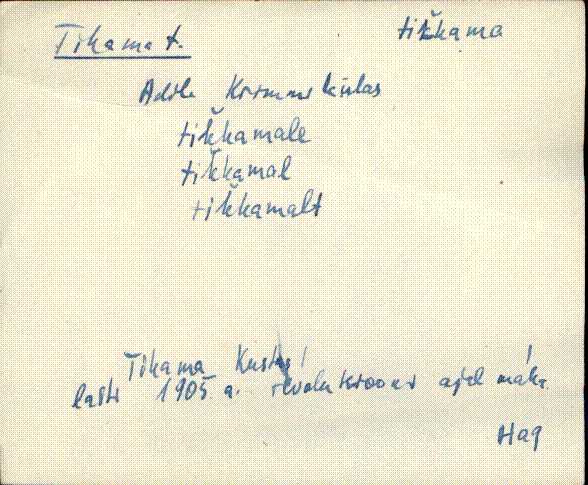 Tikama t. tik̆kama
Adila Kõrsmaa külas
tik̆kamale
tik̆kamal
tik̆kamalt
Tikama Kustas
lasti 1905. a. revolutsiooni ajal maha.
Hag